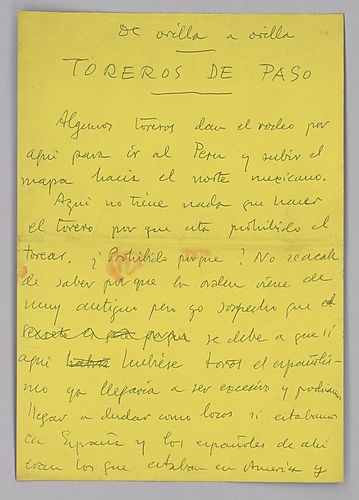 De orilla a orilla
19
TOREROS DE PASO
Algunos toreros dan el rodeo por
aqui para ir al Peru y subir el
mapa hacia el norte mexicano.
Aqui no tiene nada que hacer
el torero por que esta prohibido el
torear. ¿Prohibido porque? No se acaba
de saber por que la orden viene de
muy antiguo pero yo sospecho que
se debe a que si
aqui hubiese toros el españolis-
mo ya llegaria a ser excesivo y podriamos
llegar a dudar como locos si estabamos
en España y los españoles de ahi
eran los que estaban en America y